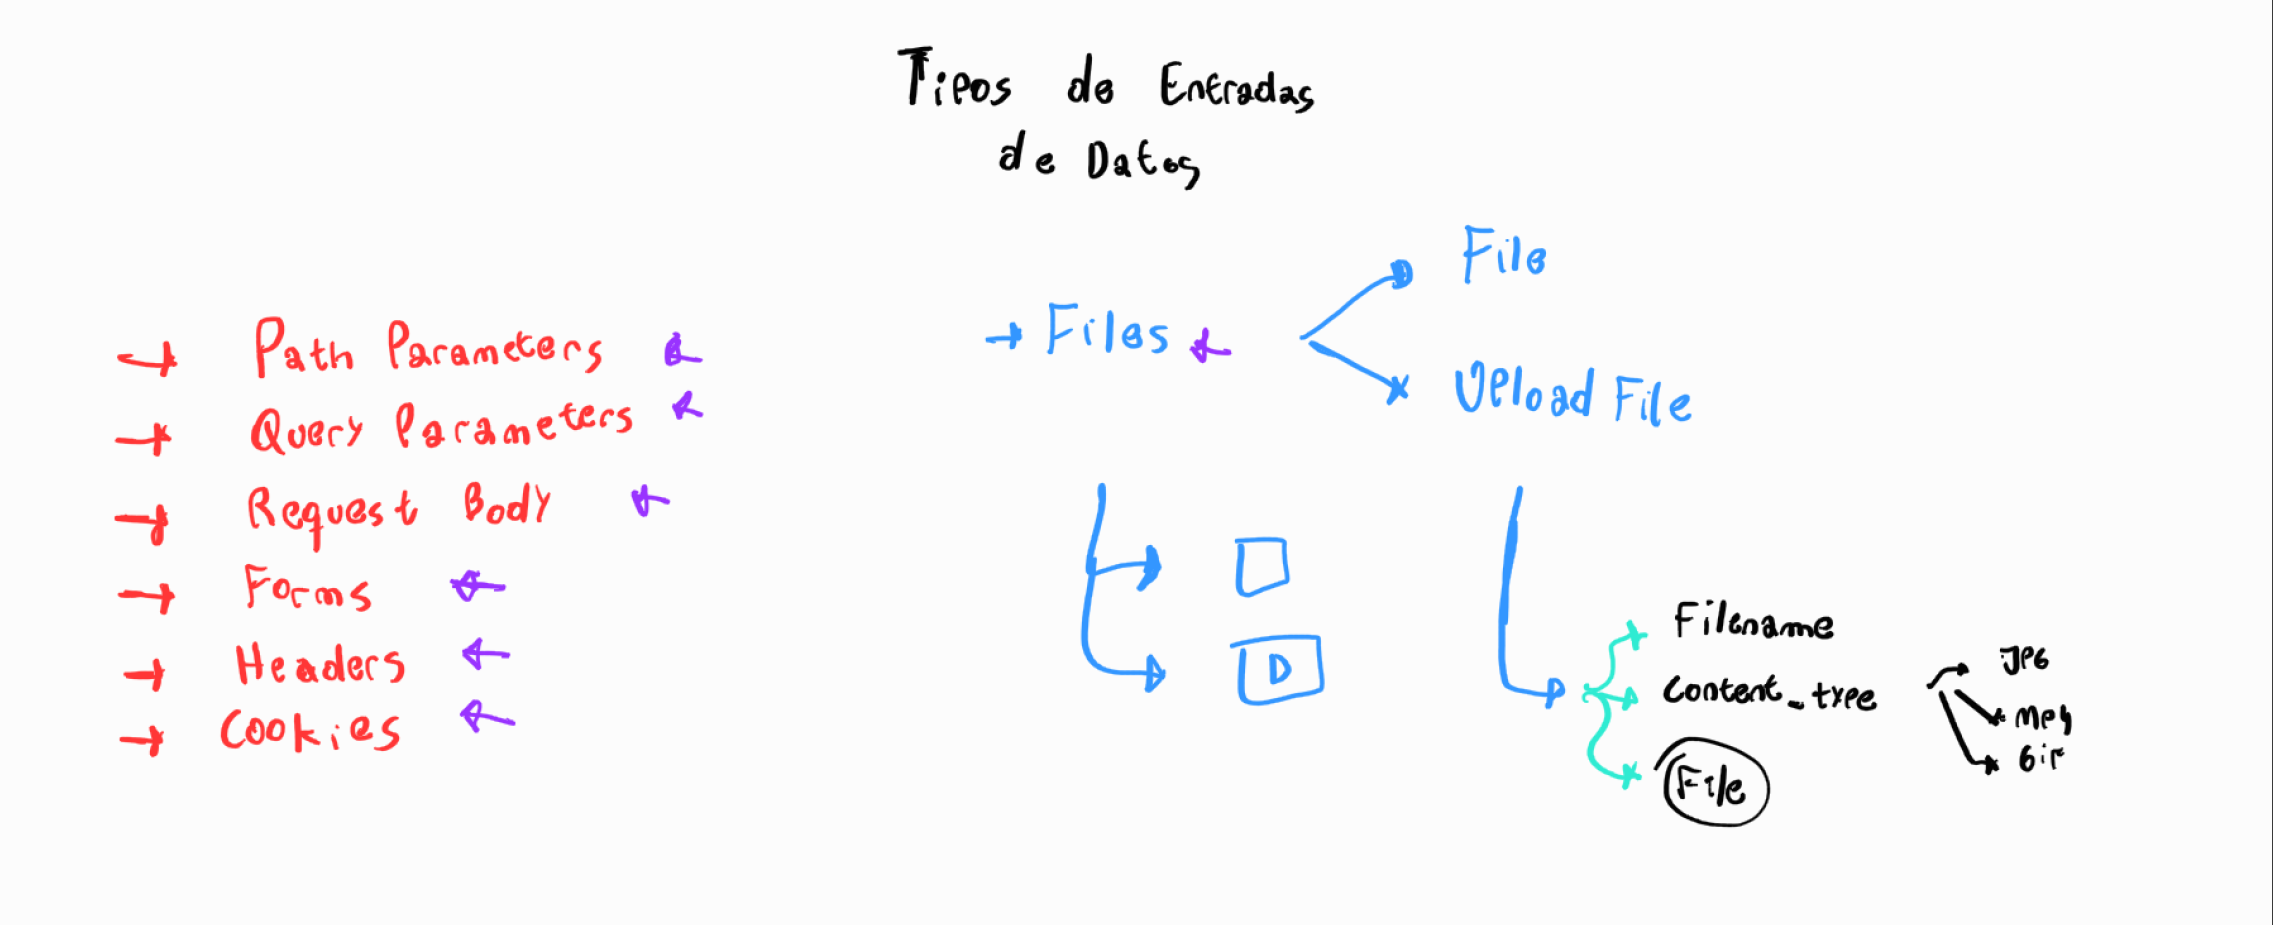 Tipos de Entradas
de Datos
Path Parameters
Query Parameters
Request Body
Forms
Headers
Cookies
Files
File
Upload File
D
Filename
Content_type
File
JPG
MP4
Gif